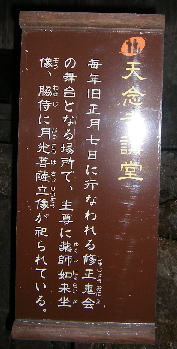 天念寺講堂
毎年旧正月七日に行なわれる修正鬼会
の舞台となる場所で、主尊に薬師如来坐
像、脇侍に月光菩薩立像が祀られている。